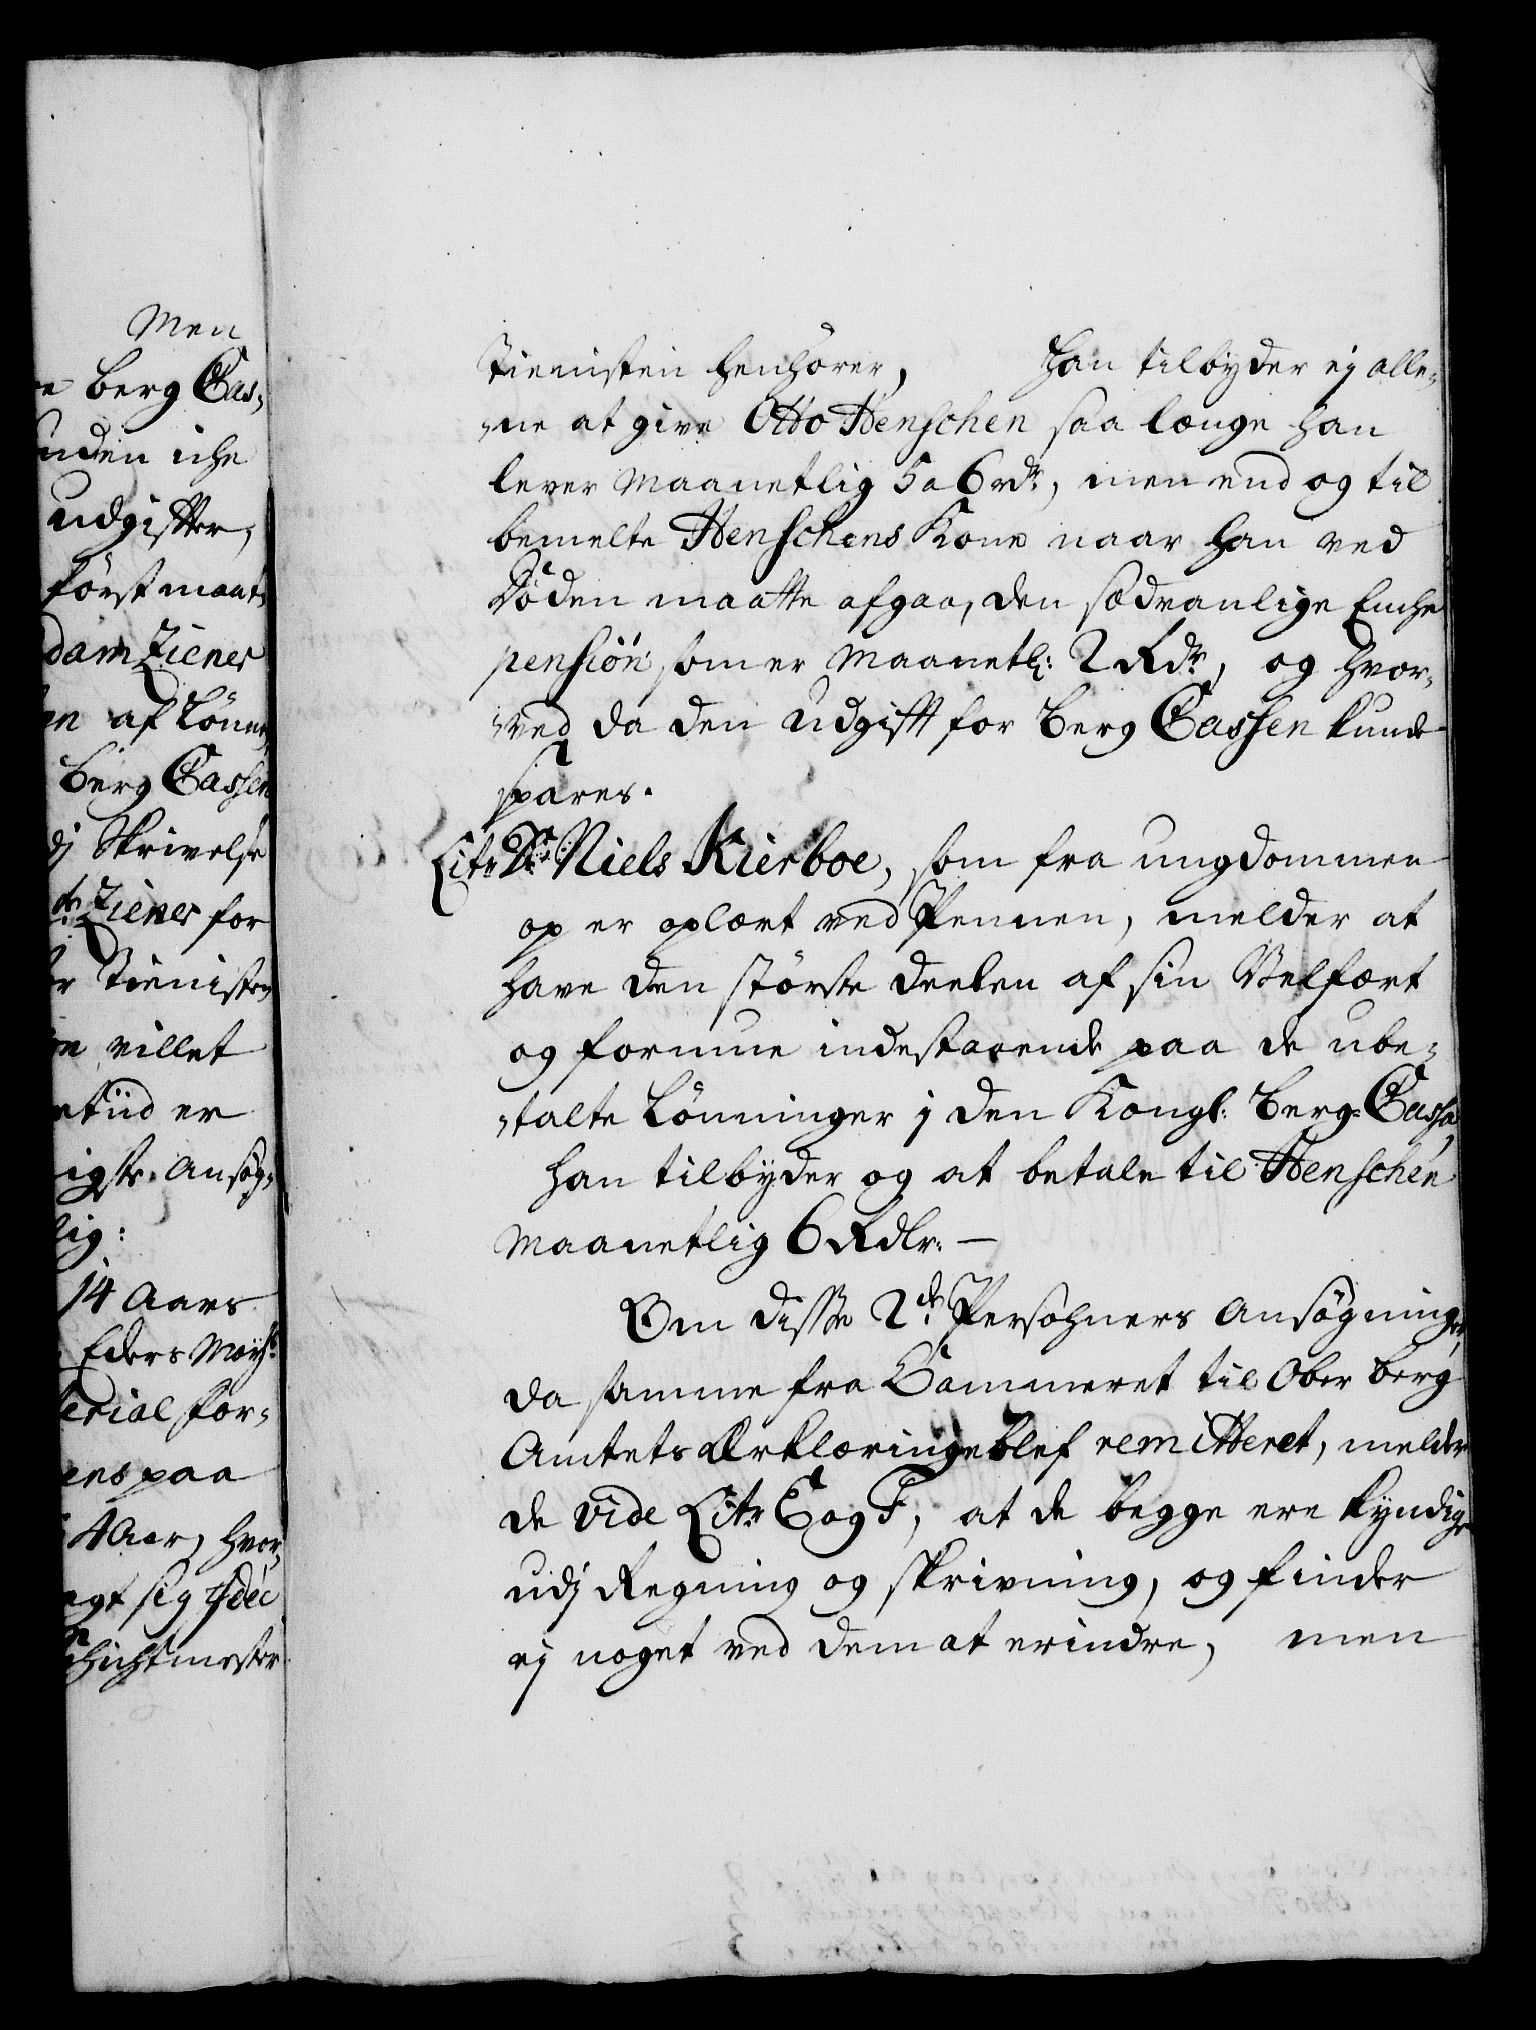 Men
e Berg Cas,
uden iche
udgifter,
först maat,
dam Ziener
en af Lönne,
Berg Cassen
dj Skrivelse
Ziener for
r Tienisten
e villet
etiid er
igste Ansög,
lig:
14 Aars
Eders Mayst:
erial for,
ens paa
4 Aar, hvor,
agt sig
Schichtmester
Tienisten henhörer, Han tilbyder ej alle,
,,ne at give Otto Henschen saa længe han
lever Maanetlig 5 a 6 rdr, men end og til
bemelte Henschens Kone naar han ved
Döden maatte afgaa, den sædvanlige Enche
pension som er Maanetl: 2 Rdr, og hvor,
,,ved da den Udgift for Berg Cassen kunde
spares.
Litr D: Niels Kierboe, som fra ungdommen
op er oplært ved Pennen, melder at
have den störste deelen af sin Velfært
og formue indestaaende paa de ube,
,,talte Lönninger j den Kongl: Berg-Cassa,
Han tilbyder og at betale til Henschen
Maanetlig 6 Rdlr: —
Om disse 2de Persohners Ansögninger,
da samme fra Cammeret til Ober Berg
Amtets Erklæringe blef remitteret, melder
de vide Litr E og F, at de begge ere kyndige
udj Regning og skrivning, og finder
ej noget ved dem at erindre, men